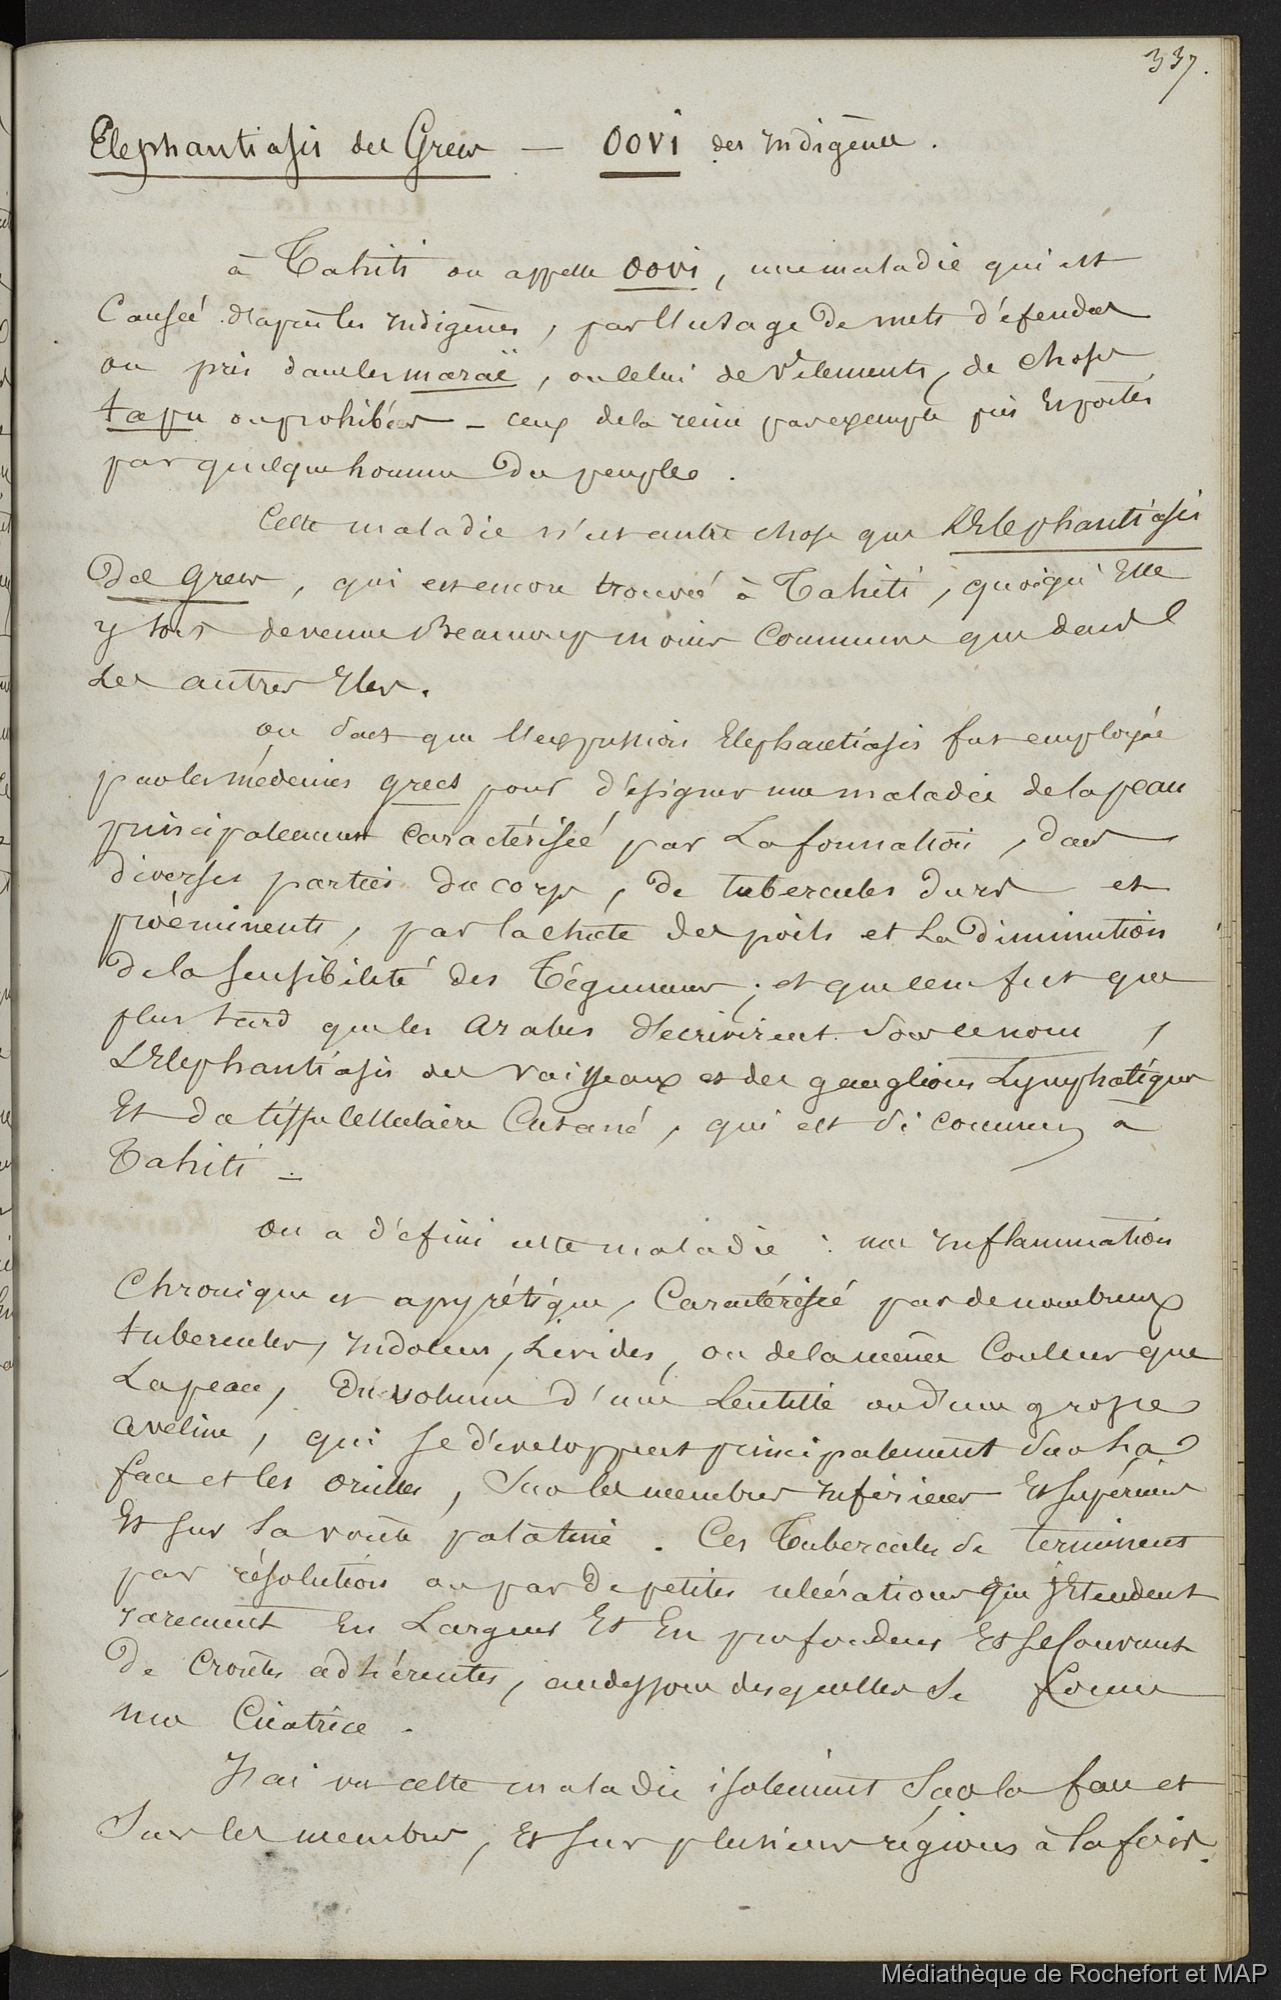 337.
Elephantiasis des Grecs — OOVI des indigènes.
à Tahiti on appelle oovi, une maladie qui est
Causée d'après les indigènes, par l'usage de mets défendus
ou pris dans les maraë, ou celui de vêtements, de choses
tapu ou prohibées – ceux de la reine par exemple pris Et portés
par quelque homme du peuple.
Cette maladie n'est autre chose que L'Elephantiasis
des Grecs, qui est encore trouvée à Tahiti, quoiqu'Elle
y soit devenue Beaucoup moins Commune que dans
Les autres Iles.
on sait que l'expression Elephantiasis fut employée
par les médecins grecs pour désigner une maladie de la peau
principalement Caractérisée par La formation, dans
diverses parties du corps, de tubercules durs et
proéminents, par la chute des poils et La diminution
de la sensibilité des Téguments; et que ce ne fut que
plus tard que les Arabes décrivirent sous ce nom,
L'Elephantiasis des vaisseaux et des ganglions Lymphatiques
Et du tissu Cellulaire Cutané, qui est si commun à
Tahiti –
on a défini cette maladie : une inflammation
Chronique et apyrétique, Caractérisée par de nombreux
tubercules, indolens, Livides, ou de la même Couleur que
La peau, du volume d'une Lentille ou d'une grosse
aveline, qui se développent principalement sur La
face et les oreilles, sur les membres inférieurs Et supérieurs
Et sur la voûte palatine. Ces Tubercules se terminent
par résolution ou par de petites ulcérations qui s'Etendent
rarement En Largeur Et En profondeur Et se Couvrent
de Croûtes adhérentes, au dessous desquelles se forme
une Cicatrice.
J'ai vu cette maladie isolément sur la face et
sur les membres, Et sur plusieurs régions à la fois.
Médiathèque de Rochefort et MAP